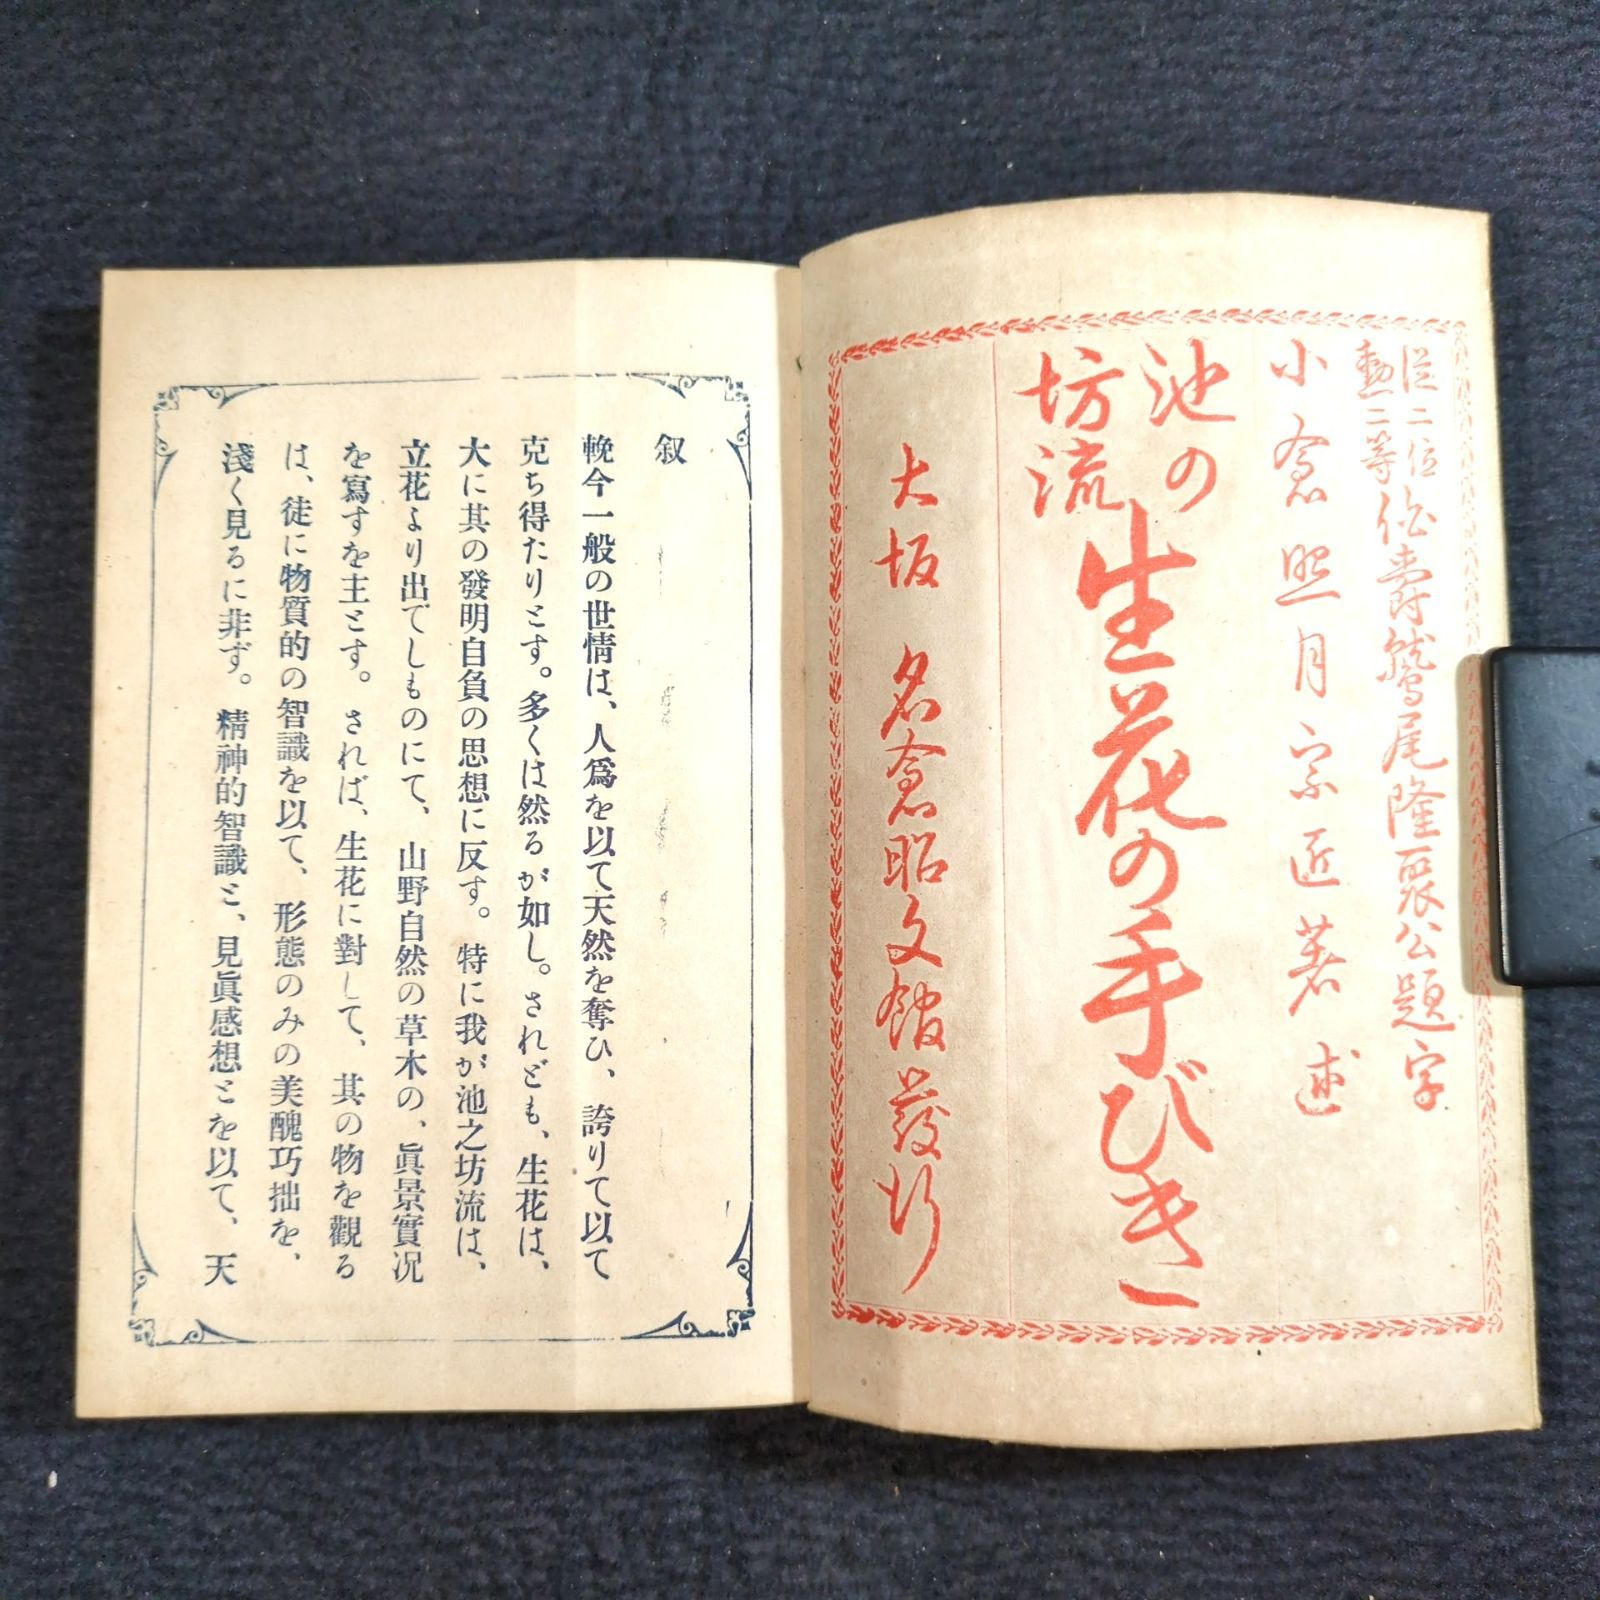 従二位
勲二等
伯爵鷲尾隆聚公題字
小倉照月宗匠著述
池の
坊流
生花の手びき
大坂 名倉昭文館発行
叙
輓今一般の世情は、人爲を以て天然を奪ひ、誇りて以て
克ち得たりとす。多くは然るが如し。されども、生花は、
大に其の發明自負の思想に反す。特に我が池之坊流は、
立花より出でしものにて、山野自然の草木の、眞景實况
を寫すを主とす。されば、生花に對して、其の物を觀る
は、徒に物質的の智識を以て、形態のみの美醜巧拙を、
淺く見るに非ず。精神的智識と、見眞感想とを以て、天